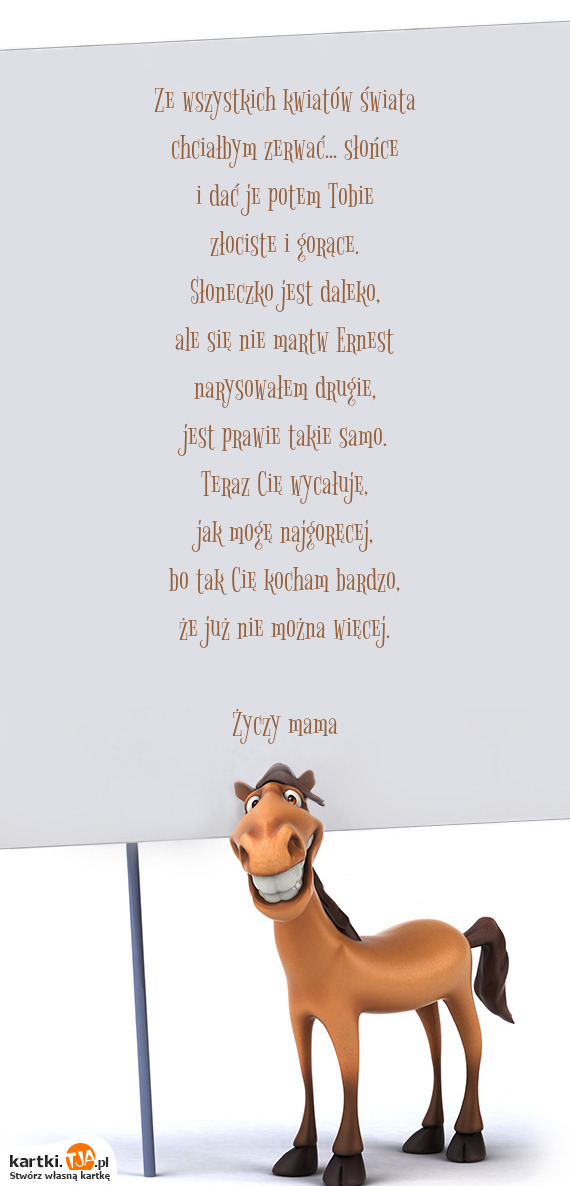 Ze wszystkich kwiatów świata
chciałbym zerwać... słońce
i dać je potem Tobie
złociste i gorące.
Słoneczko jest daleko,
ale się nie martw Ernest
narysowałem drugie,
jest prawie takie samo.
Teraz Cię wycałuję,
jak mogę najgoręcej,
bo tak Cię kocham bardzo,
że już nie można więcej.
Życzy mama
kartki.TJA.pl
Stwórz własną kartkę